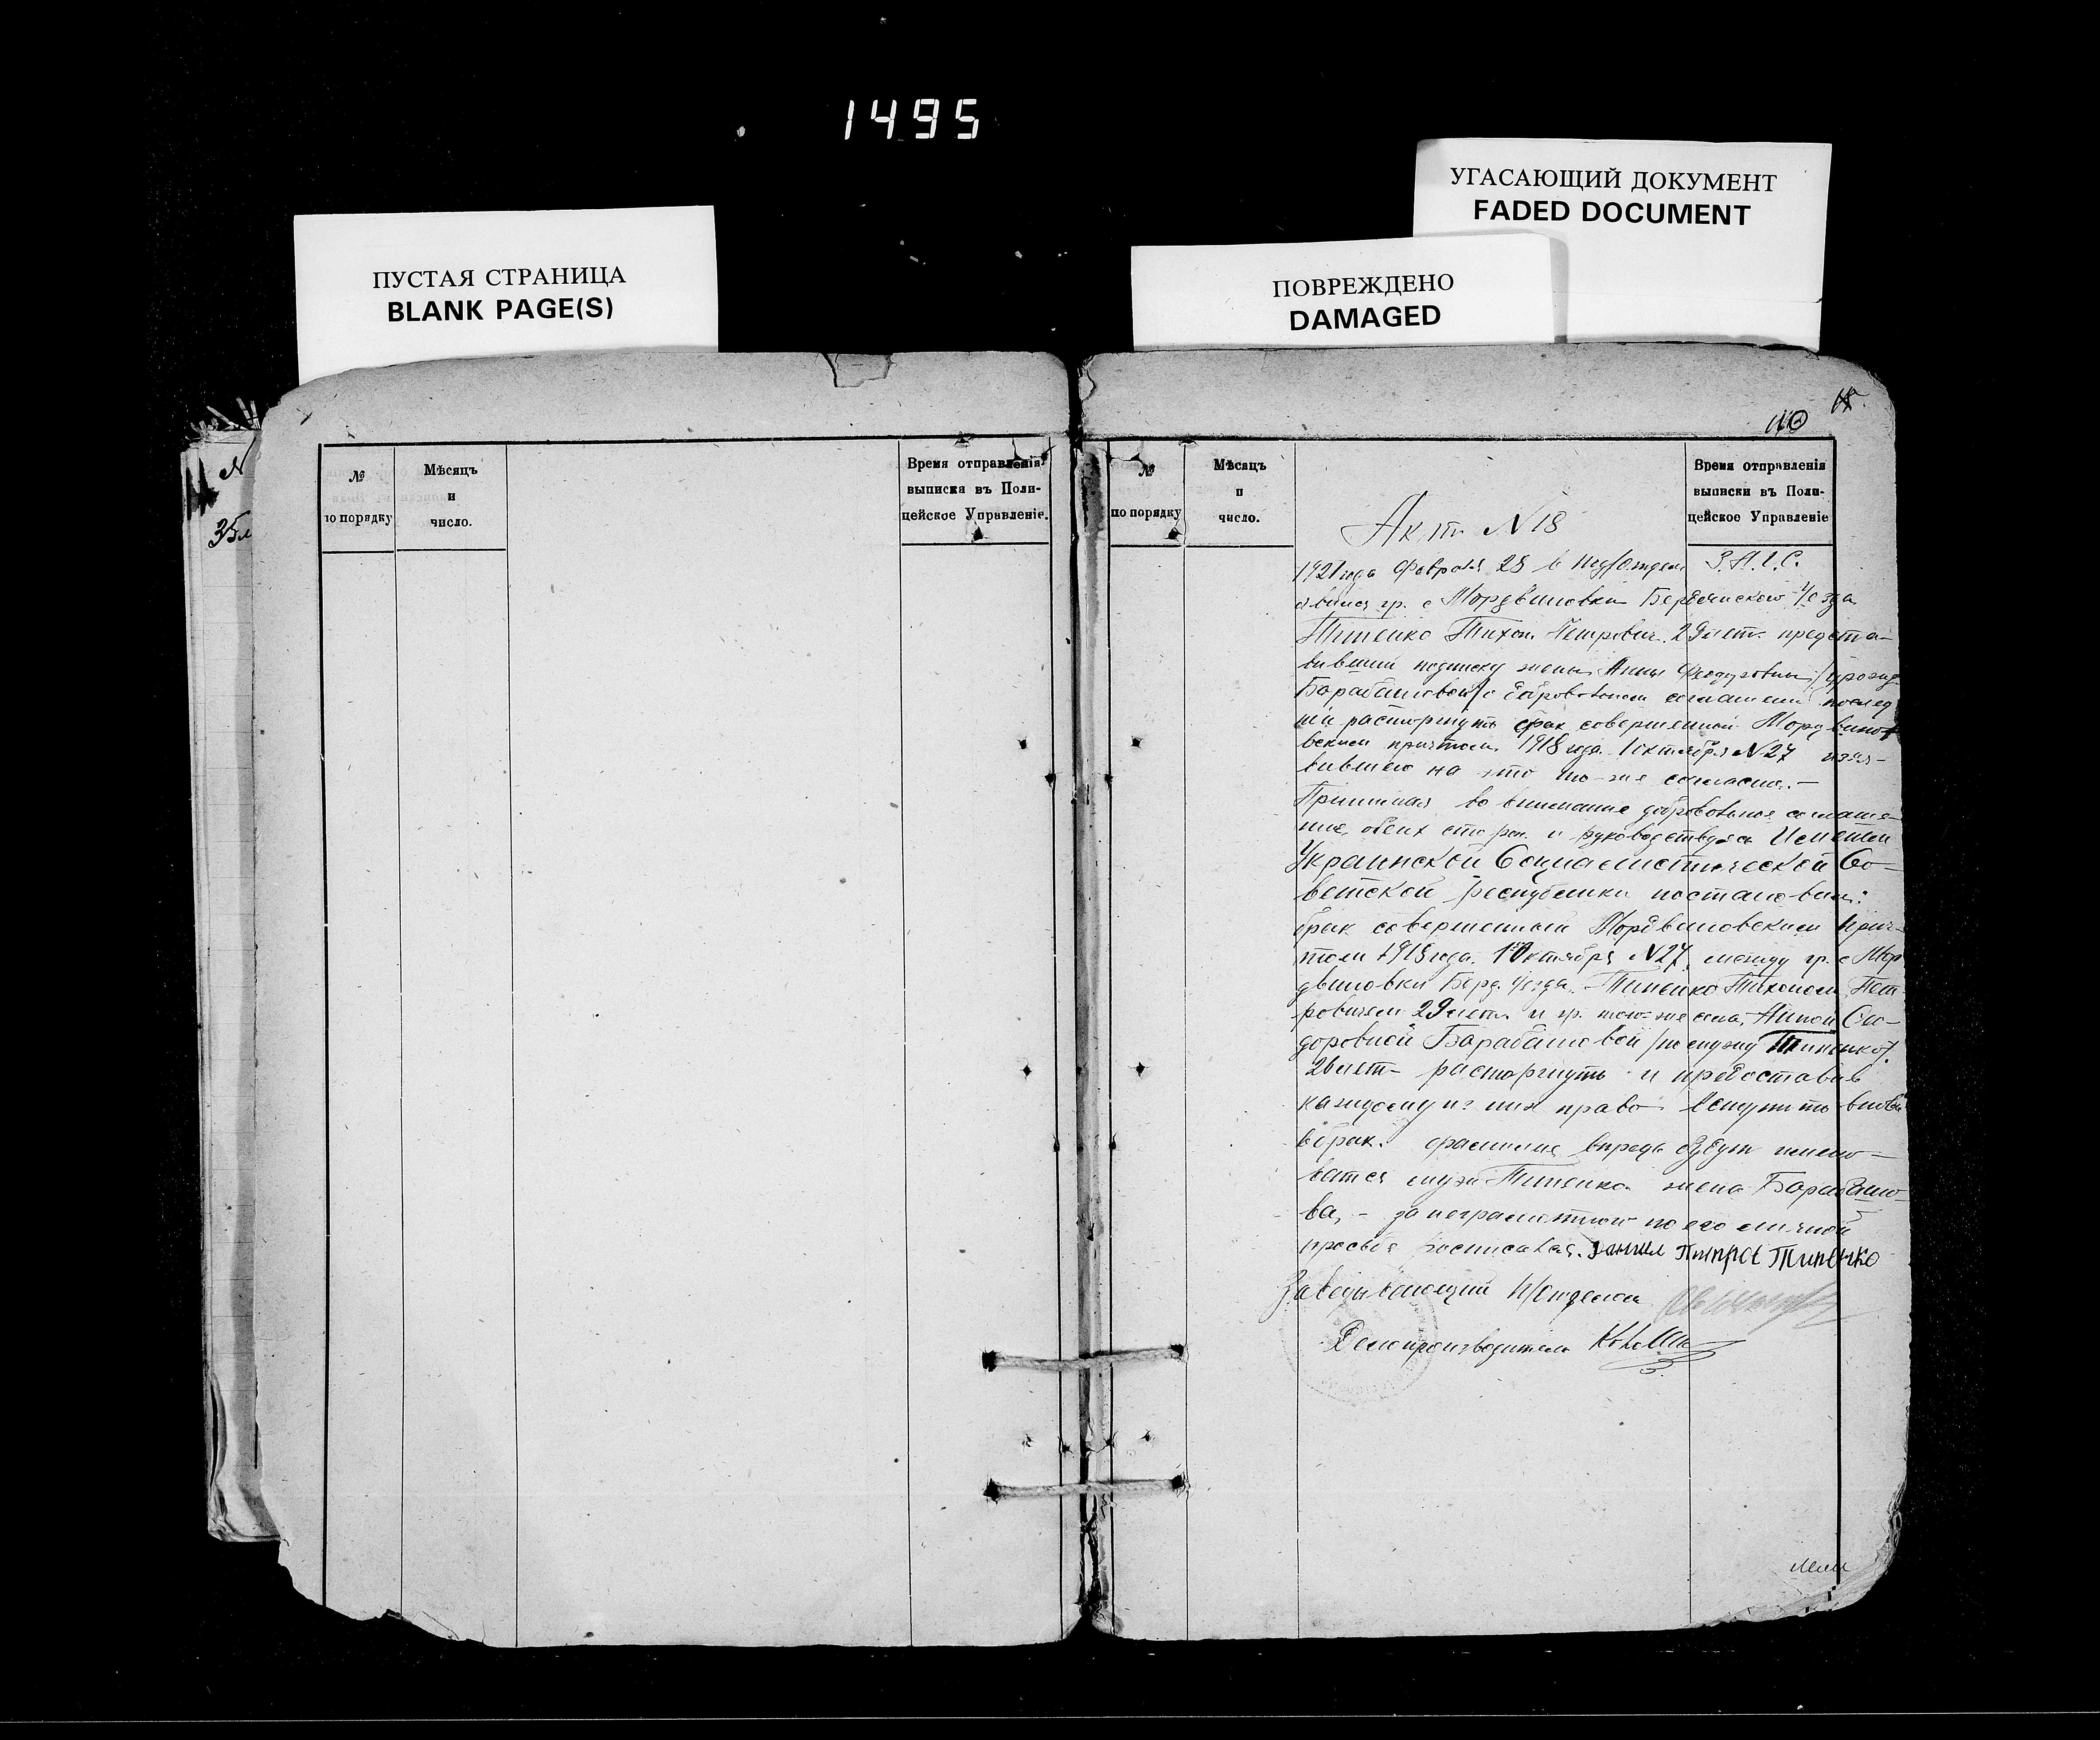 1495
ПУСТАЯ СТРАНИЦА
BLANK PAGE(S)
УГАСАЮЩИЙ ДОКУМЕНТ
FADED DOCUMENT
ПОВРЕЖДЕНО
DAMAGED
№
по порядку
Мѣсяцъ
и
число.
Время отправленія
выписки въ Поли-
цейское Управленіе.
№
по порядку
Мѣсяцъ
и
число.
Время отправленія
выписки въ Поли-
цейское Управленіе
Акт № 18
1921 года Февраля 28 в Под/Отдел З.А.Г.С.
явился гр. с Мордвиновки Бердянского Уезда
Типенко Тихон Петрович 29 лет. предста-
вивший подписку жены Анны /урожд
Барабашовой/ о добровольном соглашении послед
ней расторгнуть брак совершенный Мордвинов
ским причтом 1918 года 1 октября N 27 изъя-
вившего на это то-же согласие.-
Принимая во внимание добровольное соглаше-
ние обеих сторон и руководствуясь
Украинской Социалистической Со-
ветской республики постановил:
брак совершенный Мордвиновским Прич-
том 1918 года. 1 Октября N 27, между гр. с Мор
двиновки Берд. Уезда. Типенко Тихоном Пет
ровичем 29 лет. и гр. того-же села, Анной Си-
доровной Барабашовой /по мужу Типенко/.
лет- расторгнуть и предоставив
каждому из них право вступить вновь
в брак. фамилия впредь будут имено-
ватся муж Типенко жена Барабашо-
ва, - за неграмотного по его личной
просьбе росписался. Типенко
Заведывающий П/Отделом
Делопроизводитель